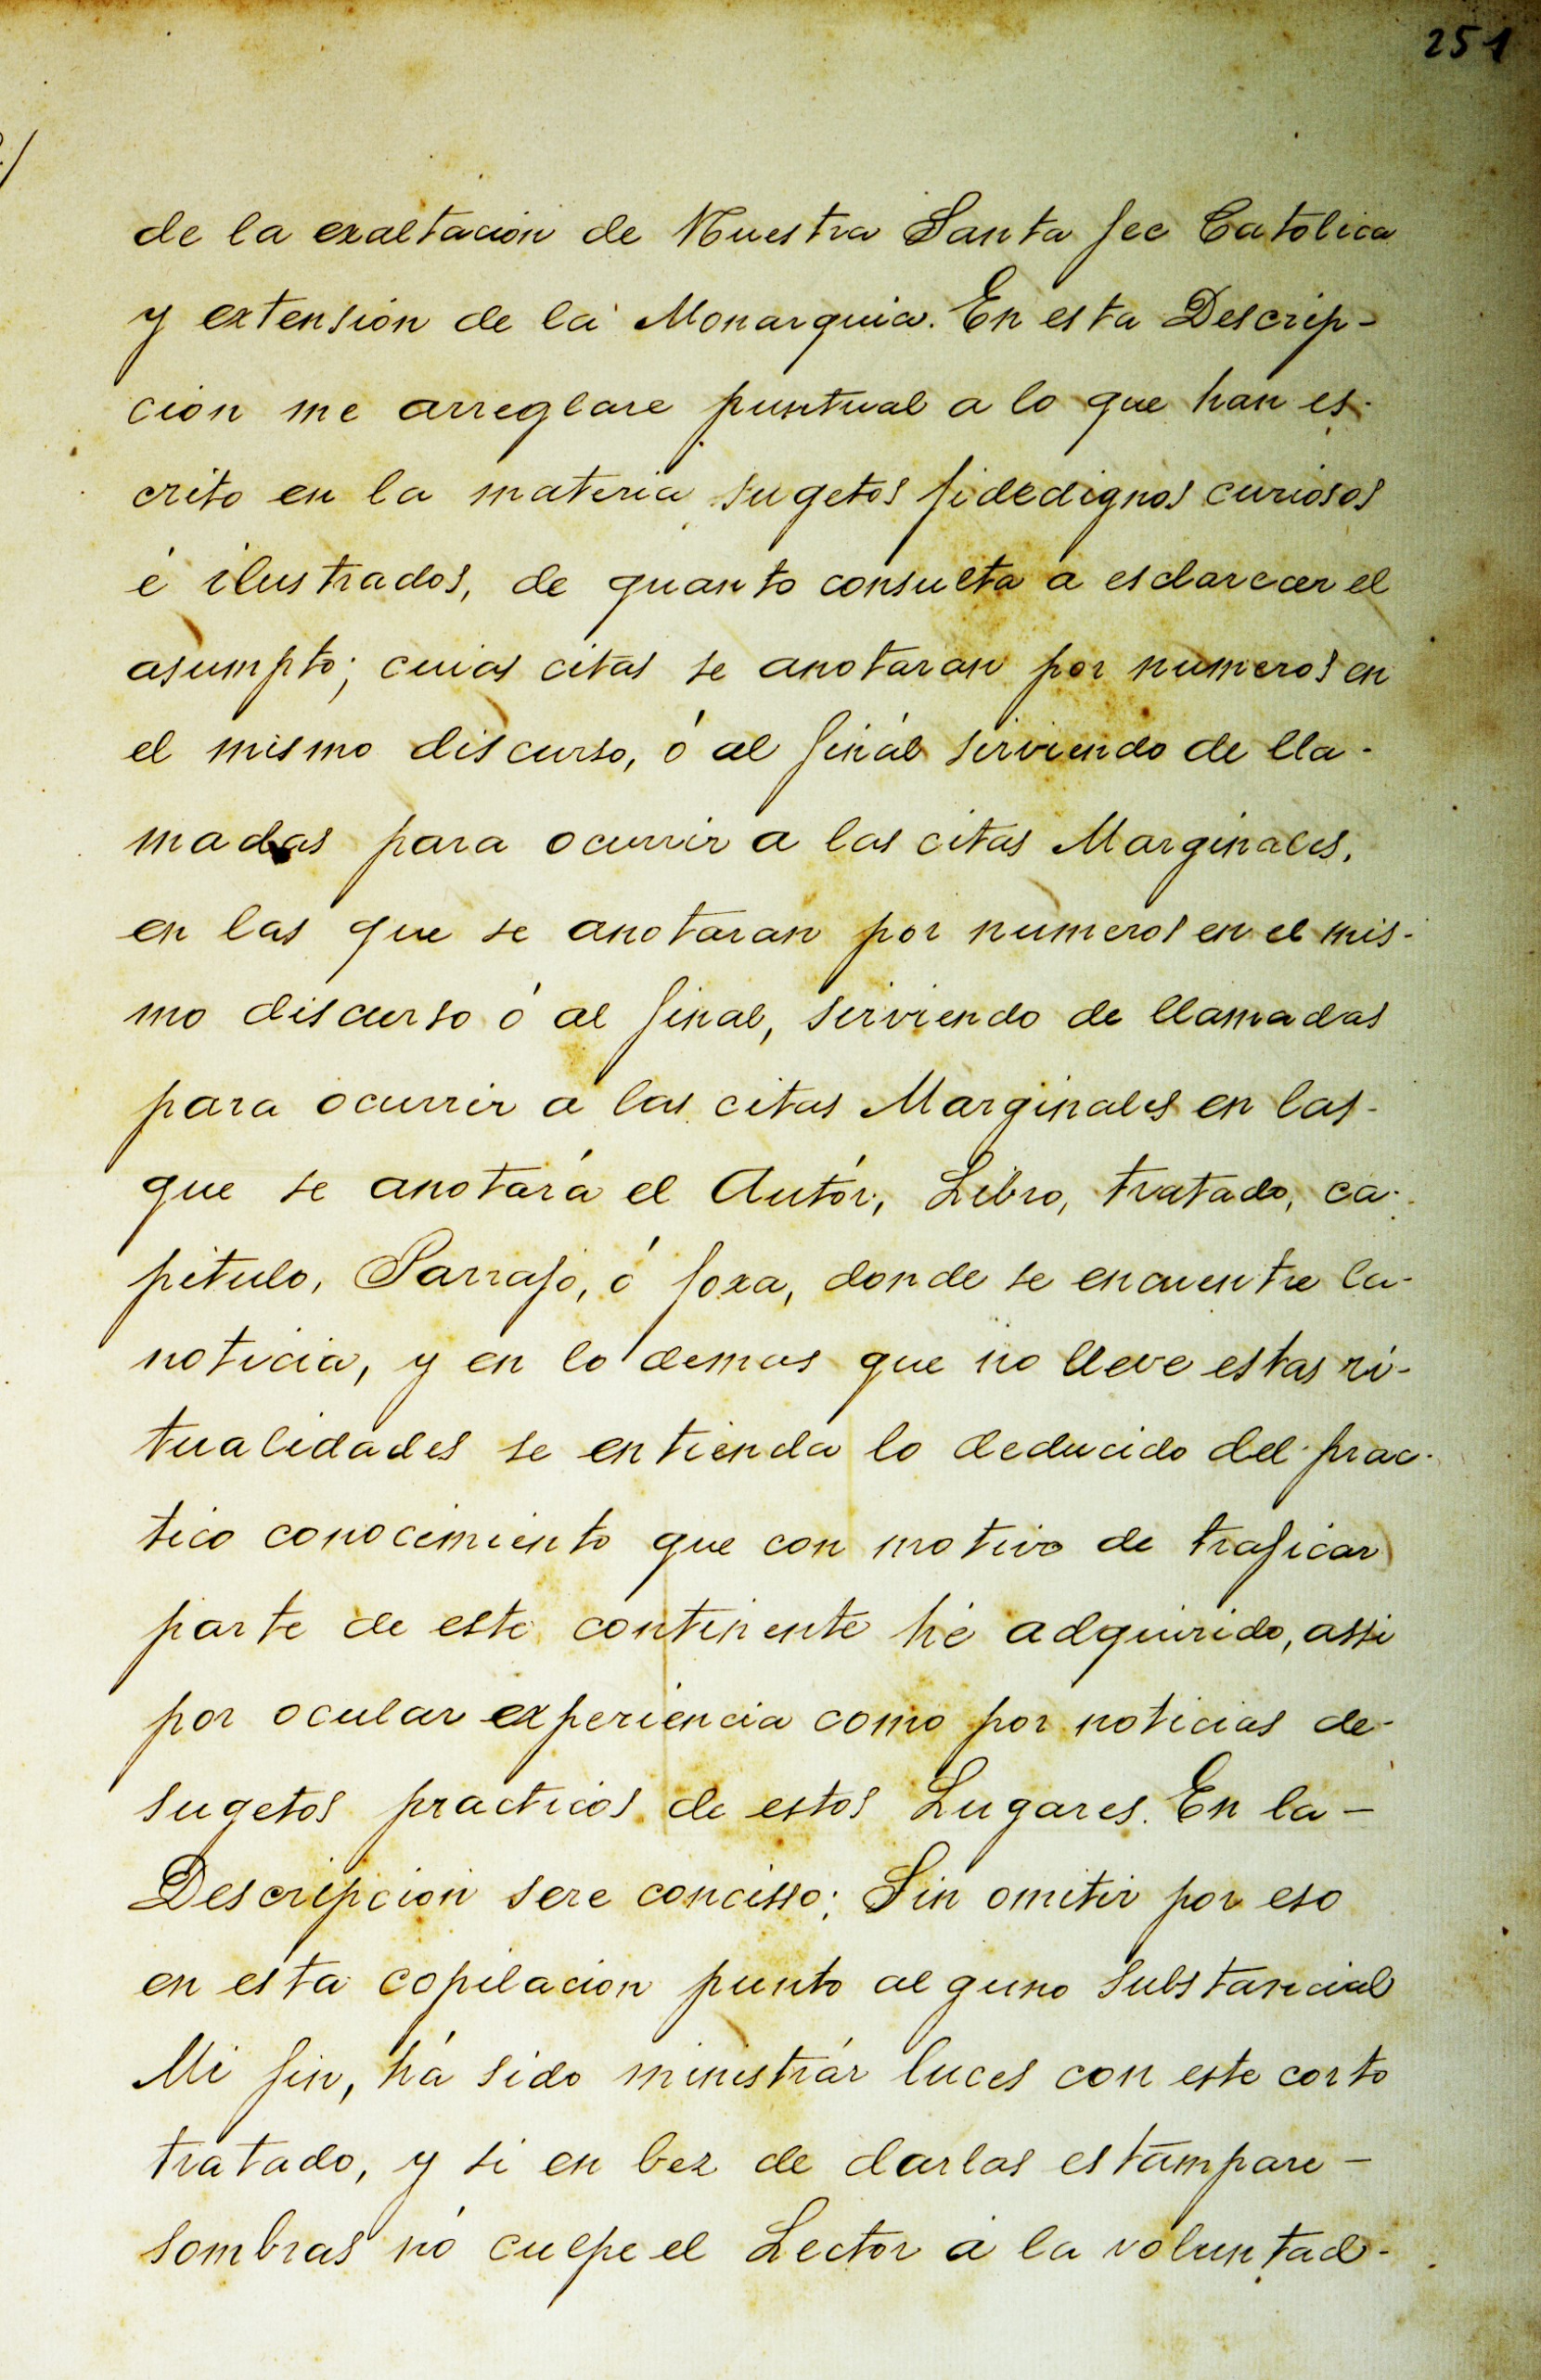 251
de la exaltación de Nuestra Santa fee Catolica
y extensión de la Monarquia. En esta Descrip-
cion me arreglare puntual a lo que han es-
crito en la materia sugetos fidedignos curiosos
é ilustrados, de quanto consulta a esclarecer el
asumpto; cuias citas se anotaran por numeros en
el mismo discurso, ó al finál sirviendo de lla-
madas para ocurrir a las citas Marginales,
en las que se anotaran por numeros en el mis-
mo discurso ó al final, sirviendo de llamadas
para ocurrir a las citas Marginales en las-
que se anotará el Autór, Libro, tratado, ca-
pitulo, Parrafo, ó foxa, donde se encuentre la-
noticia, y en lo demas que no lleve estas ri-
tualidades se entienda lo deducido del prac-
tico conocimiento que con motivo de traficar
parte de este continente hé adquirido, assi
por ocular experiencia como por noticias de-
sugetos practicos de estos Lugares. En la-
Descripcion sere concisso; Sin omitir por eso
en esta copilacion punto alguno substancial
Mi fin, há sido ministrár luces con este corto
tratado, y si en bez de darlas estampare-
sombras nó culpe el Lector á la voluntad-